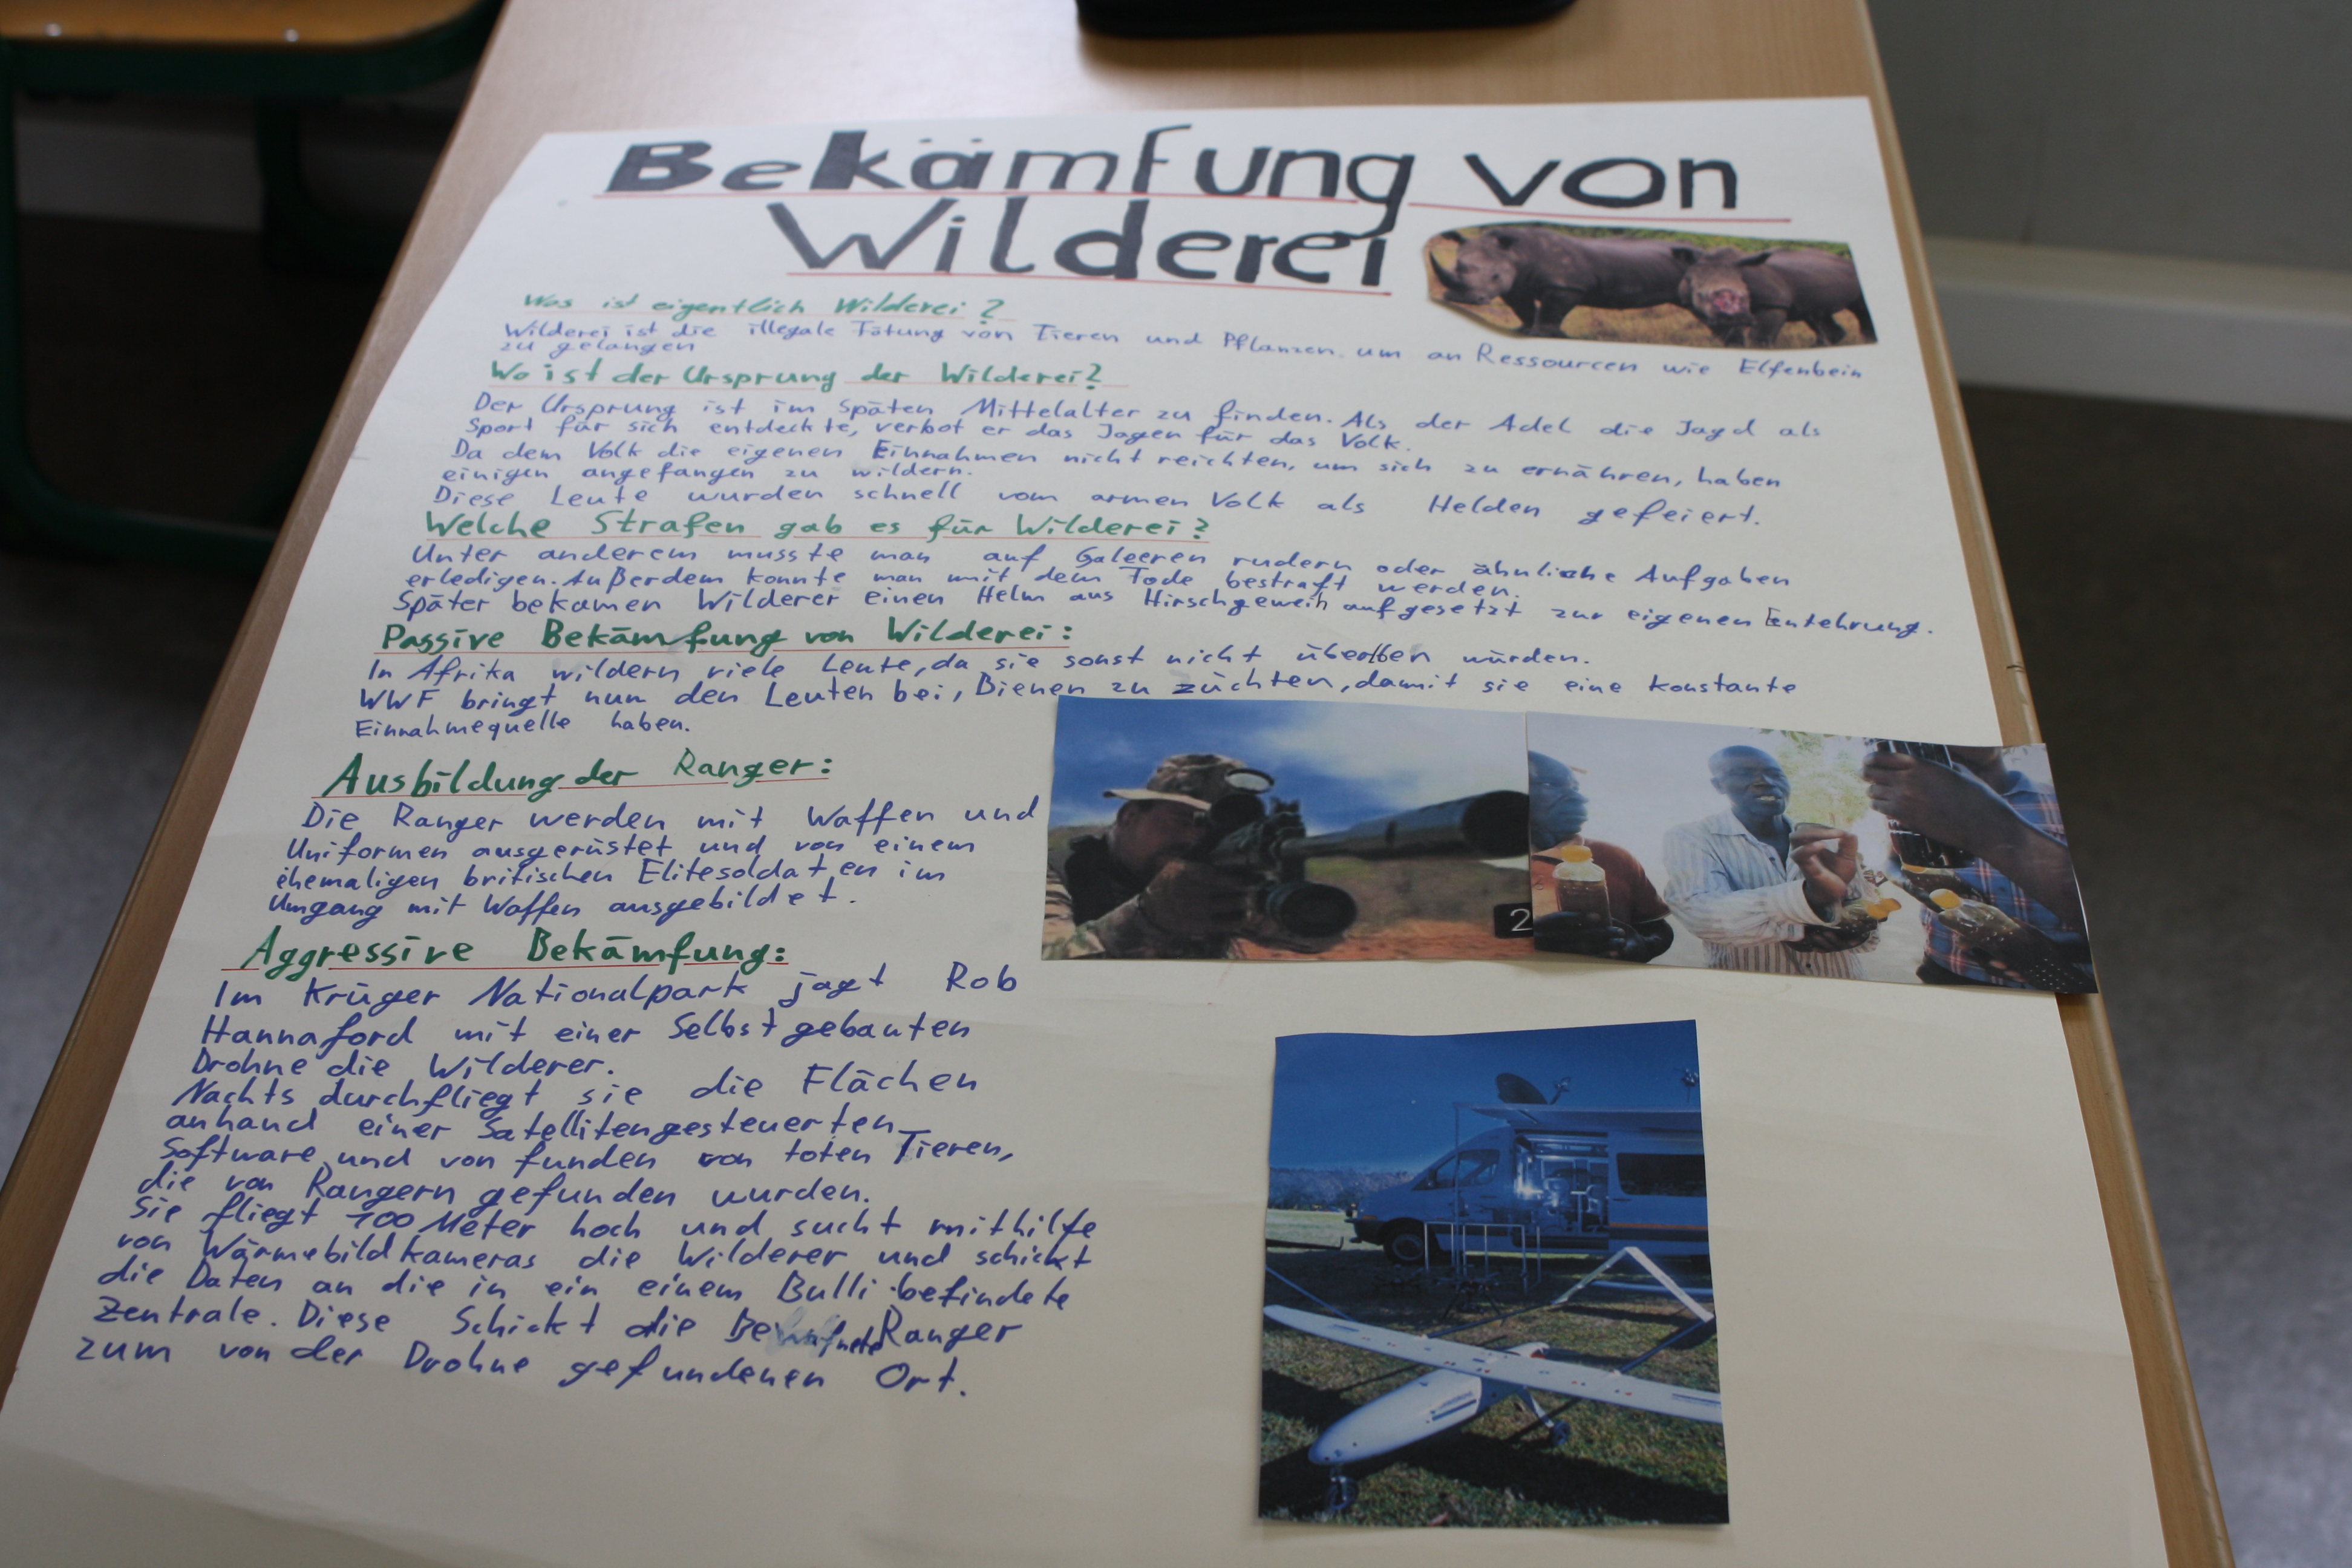 Bekämfung von
Wilderei
Was ist eigentlich Wilderei?
Wilderei ist die illegale Tötung von Tieren und Pflanzen um an Ressourcen wie Elfenbein
zu gelangen
Wo ist der Ursprung der Wilderei?
Der Ursprung ist im späten Mittelalter zu finden. Als der Adel die Jagd als
Sport für sich entdeckte, verbot er das Jagen für das Volk.
Da dem Volk die eigenen Einnahmen nicht reichten, um sich zu ernähren, haben
einigen angefangen zu wildern.
Diese Leute wurden schnell vom armen Volk als Helden gefeiert.
Welche Strafen gab es für Wilderei?
Unter anderem musste man auf Galeeren rudern oder ähnliche Aufgaben
erledigen. Außerdem konnte man mit dem Tode bestraft werden.
Später bekamen Wilderer einen Helm aus Hirschgeweih aufgesetzt zur eigenen Entehrung.
Passive Bekämfung von Wilderei:
In Afrika wildern viele Leute, da sie sonst nicht würden.
WWF bringt nun den Leuten bei, Bienen zu züchten, damit sie eine konstante
Einnahmequelle haben.
Ausbildung der Ranger:
Die Ranger werden mit Waffen und
Uniformen ausgerüstet und von einem
ehemaligen britischen Elitesoldaten im
Umgang mit Waffen ausgebildet.
2
Aggressive Bekämfung:
Im Krüger Nationalpark jagt Rob
Hannaford mit einer Selbstgebauten
Drohne die Wilderer.
Nachts durchfliegt sie die Flächen
anhand einer Satellitengesteuerten
Software und von funden von toten Tieren,
die von Rangern gefunden wurden.
Sie fliegt 100 Meter hoch und sucht mithilfe
von Wärmebildkameras die Wilderer und schickt
die Daten an die in ein einem Bulli befindete
Zentrale. Diese Schickt die Bewafnete Ranger
zum von der Drohne gefundenen Ort.